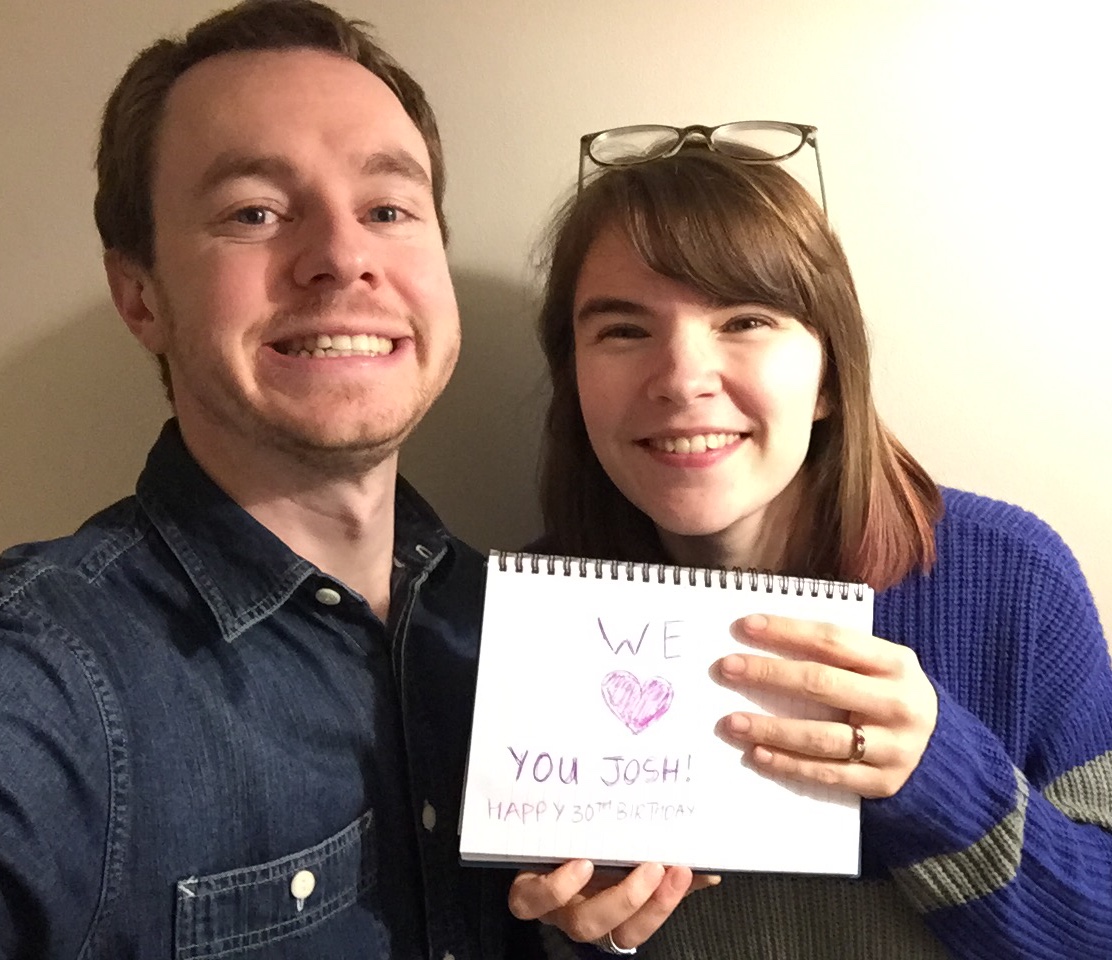 WE
YOU JOSH!
HAPPY 30TH BIRTHDAY